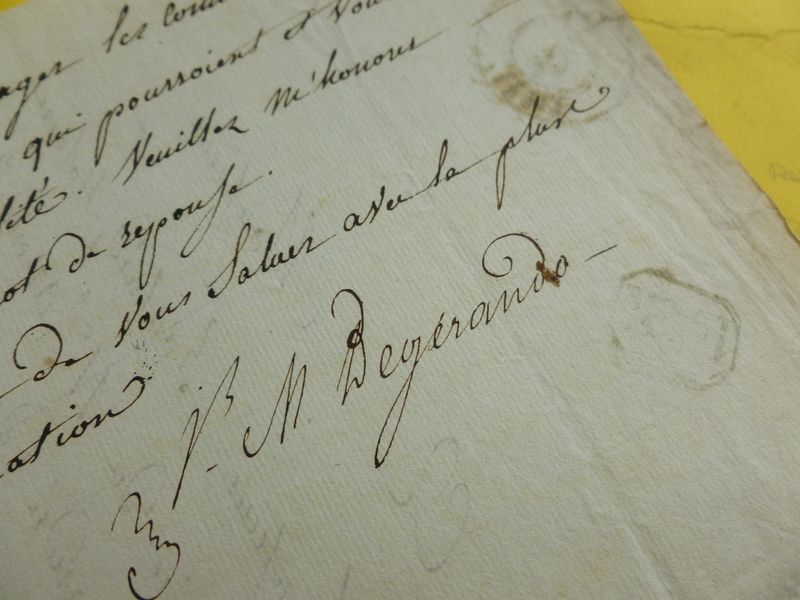 ager les
qui pourroient et vou
lité. Veuillez m'honorer
ot de reponse.
de vous saluer avec la plus
ation
J. M. Degérando